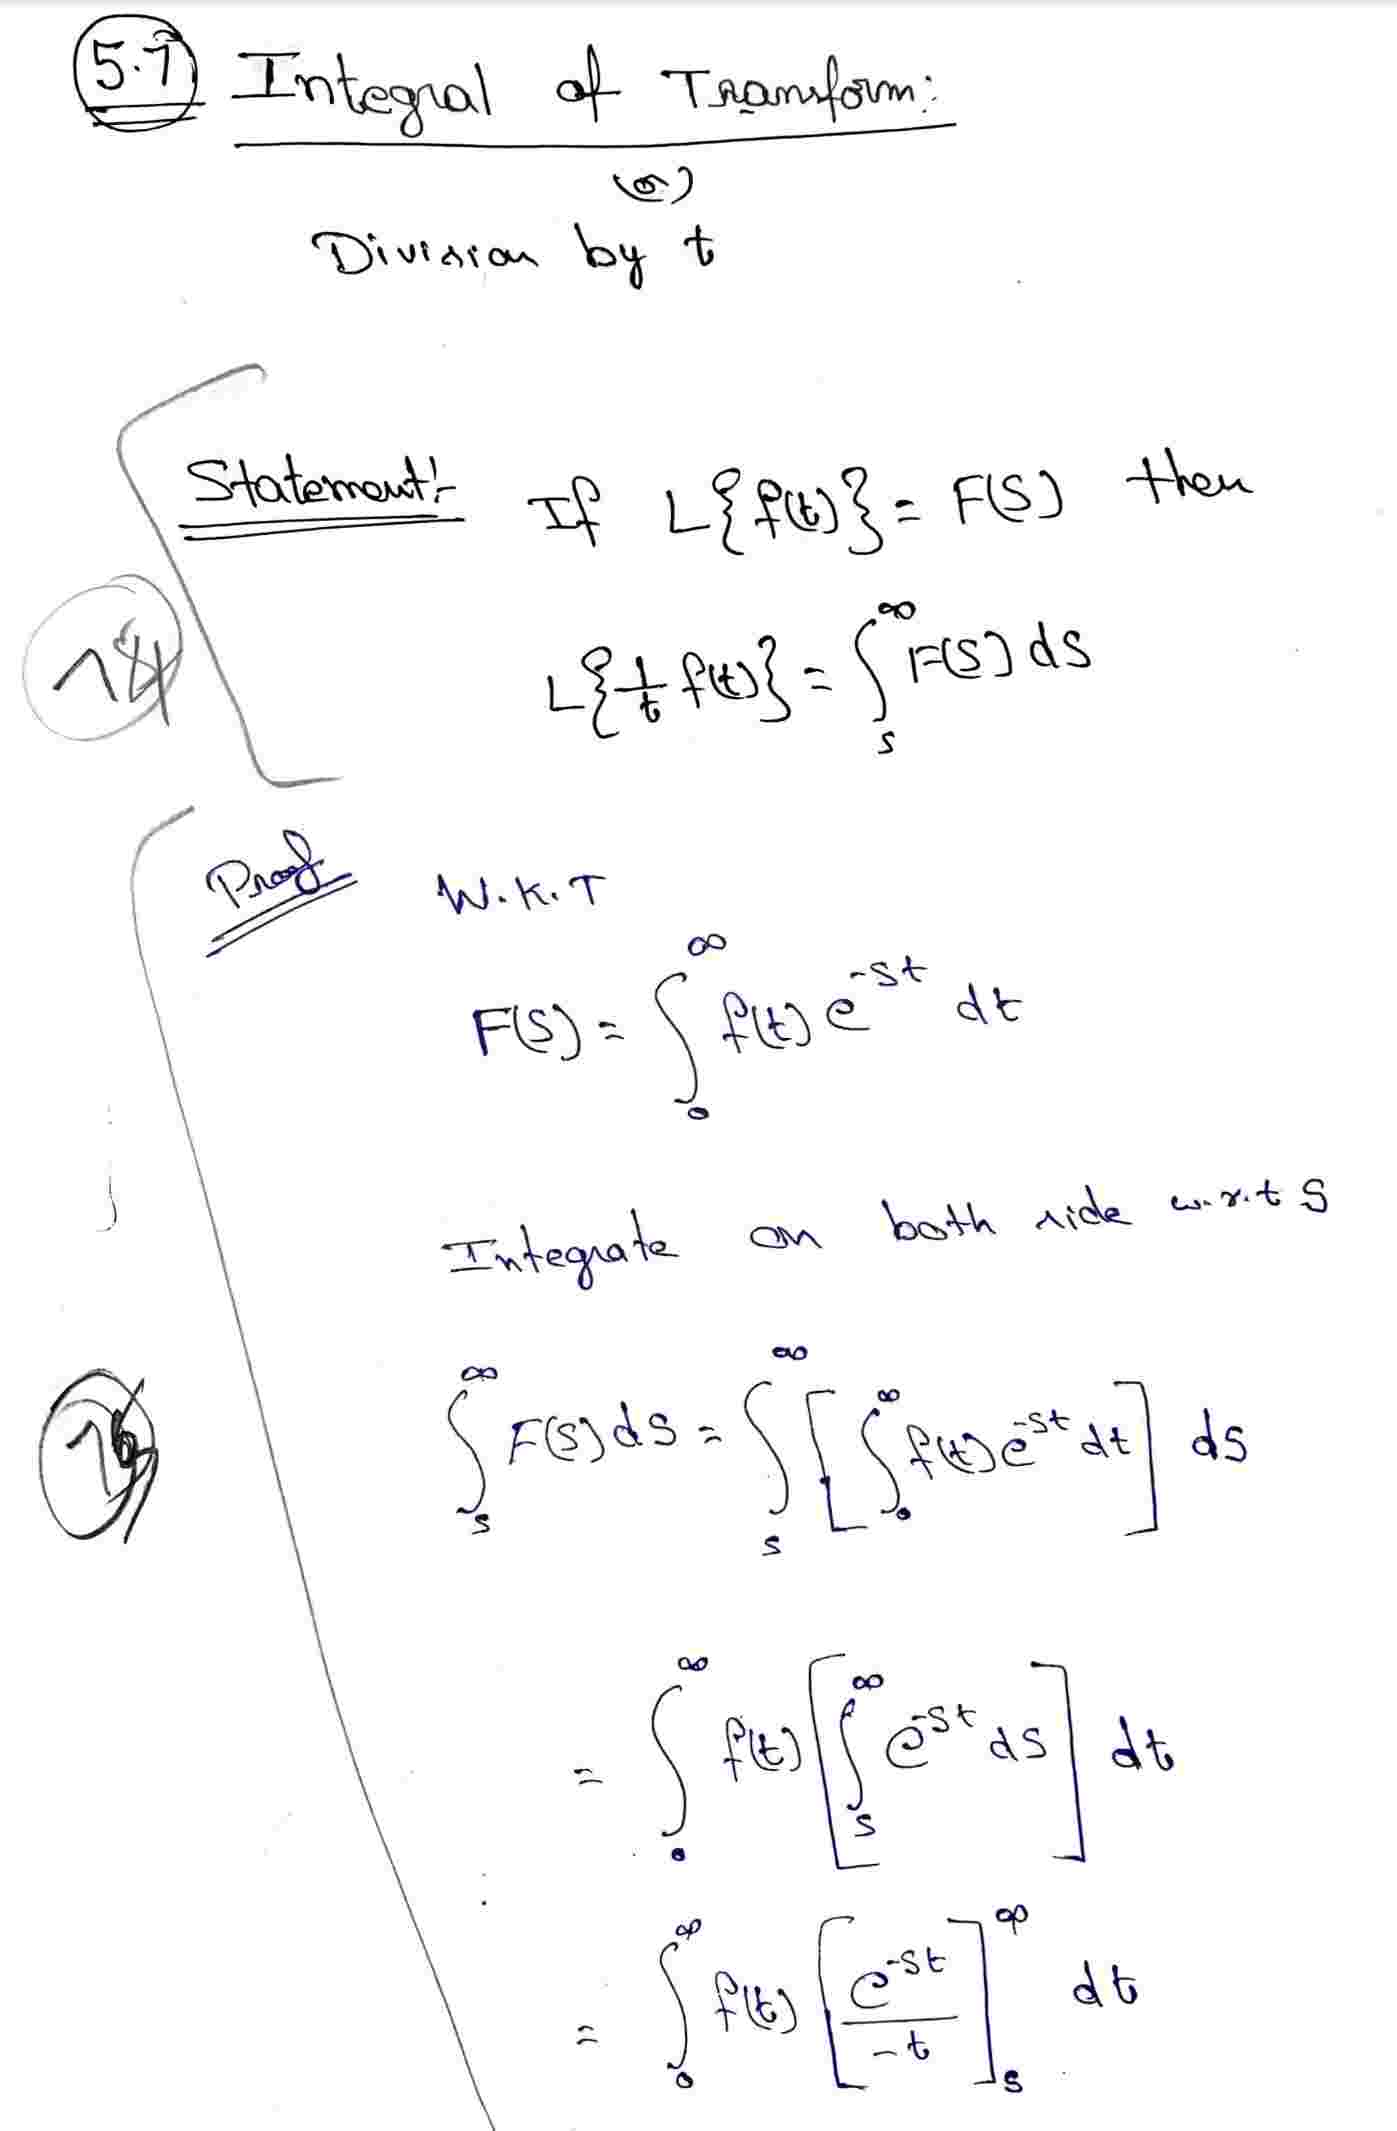 5.7 Integral of Transform:
(or)
Division by t
Statement:- If L{f(t)} = F(S) then
L{1/t f(t)} = ∫_s^∞ F(S) ds
Proof W.K.T
F(S) = ∫_0^∞ f(t) e^{-st} dt
Integrate on both side w.r.t S
∫_s^∞ F(S) ds = ∫_s^∞ [∫_0^∞ f(t) e^{-st} dt] ds
= ∫_0^∞ f(t) [∫_s^∞ e^{-st} ds] dt
= ∫_0^∞ f(t) [e^{-st} / -t]_s^∞ dt